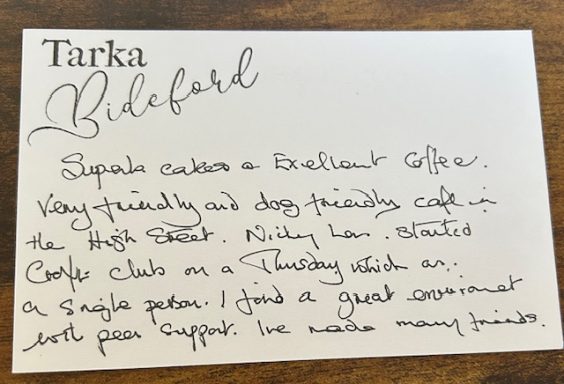 Tarka
Bideford
Superb cakes & Excellent Coffee.
Very friendly and dog friendly cafe in
the High Street. Nicky has started
club on a Thursday which as
a single person. I find a great enviromet
with peer support. Ive made many friends.